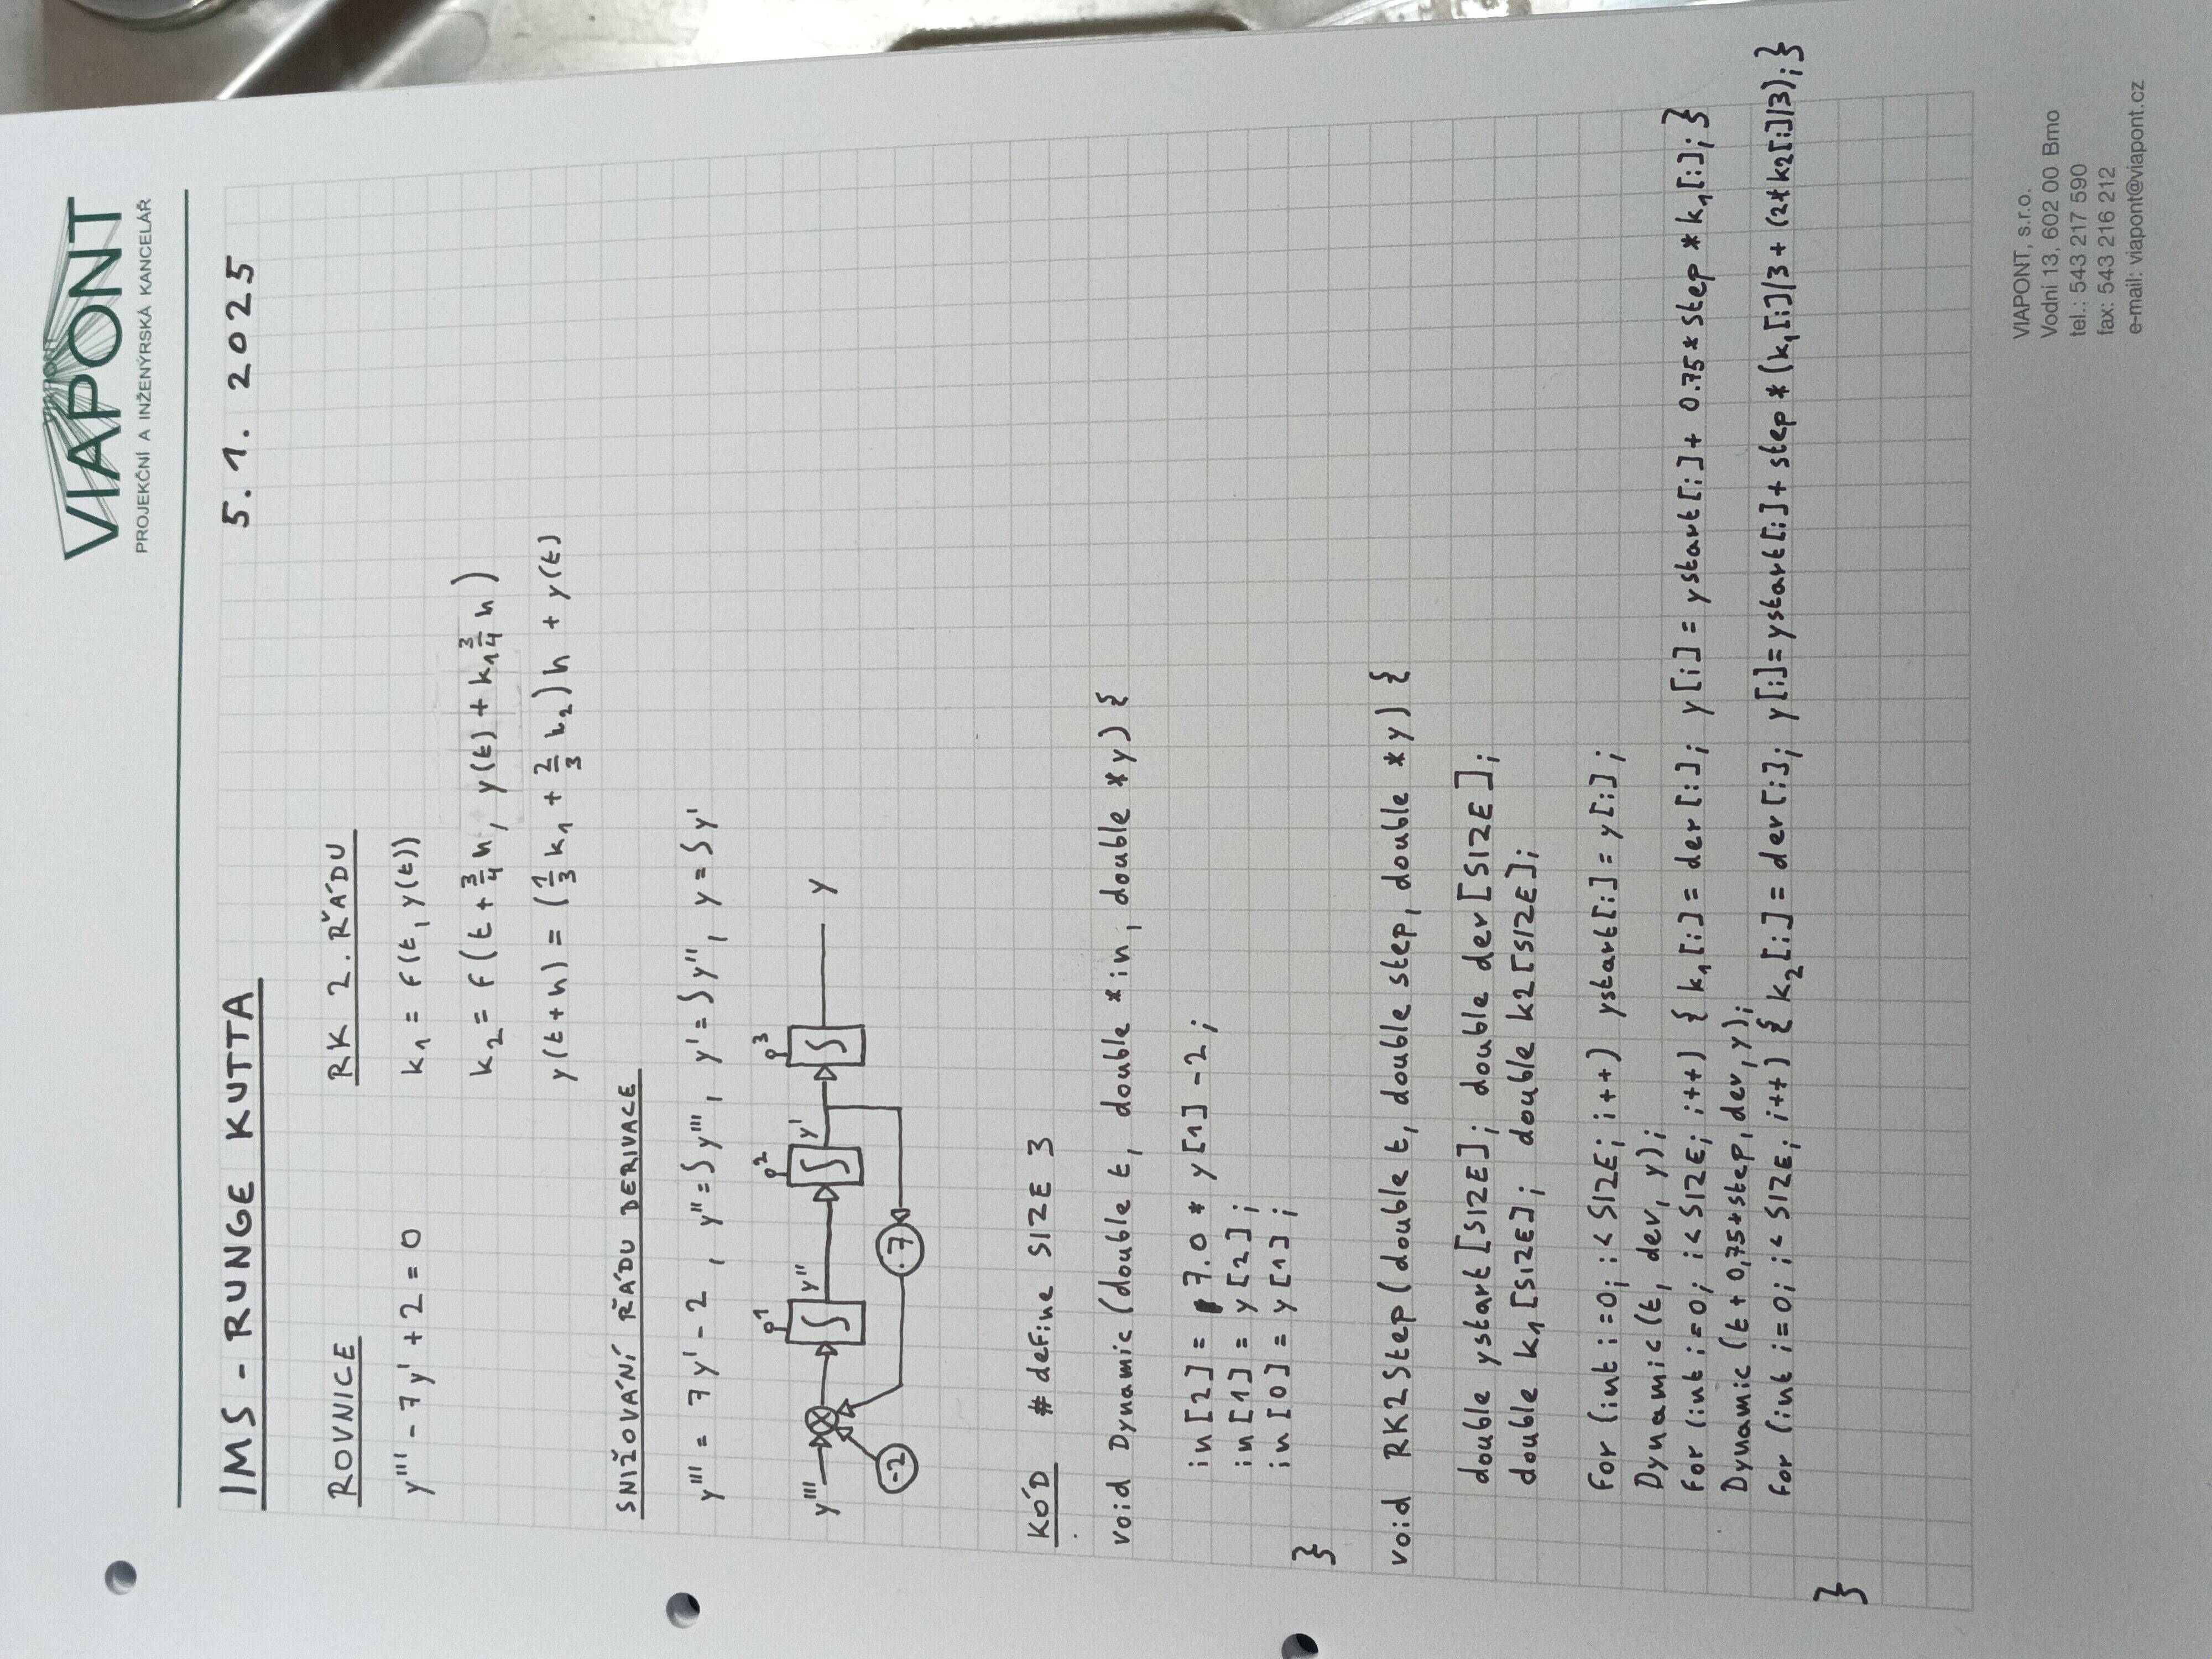 VIAPONT
PROJEKČNÍ A INŽENÝRSKÁ KANCELÁŘ
IMS - RUNGE KUTTA 5. 1. 2025
ROVNICE
y''' - 7y' + 2 = 0
RK 2. ŘÁDU
k₁ = f(t, y(t))
k₂ = f(t + 3/4 h, y(t) + k₁ 3/4 h)
y(t + h) = (1/3 k₁ + 2/3 k₂) h + y(t)
SNIŽOVÁNÍ ŘÁDU DERIVACE
y''' = 7y' - 2 , y'' = ∫y''' , y' = ∫y'' , y = ∫y'
1 2 3
y''' ∫ y'' ∫ y' ∫ y
-2 .7
KÓD #define SIZE 3
void Dynamic(double t, double *in, double *y) {
in[2] = 7.0 * y[1] -2 ;
in[1] = y[2] ;
in[0] = y[1] ;
}
void RK2Step(double t, double step, double *y) {
double ystart[SIZE]; double der[SIZE];
double k₁[SIZE]; double k2[SIZE];
for (int i=0; i < SIZE; i++) ystart[i] = y[i] ;
Dynamic(t, der, y);
for (int i=0; i< SIZE; i++) { k₁[i] = der[i]; y[i] = ystart[i] + 0.75* step * k₁[i]; }
Dynamic(t + 0,75*step, der, y);
for (int i=0; i< SIZE; i++) { k₂[i] = der[i]; y[i]=ystart[i]+ step*(k₁[i]/3 + (2*k2[i]/3); }
}
VIAPONT, s.r.o.
Vodní 13, 602 00 Brno
tel.: 543 217 590
fax: 543 216 212
e-mail: viapont@viapont.cz